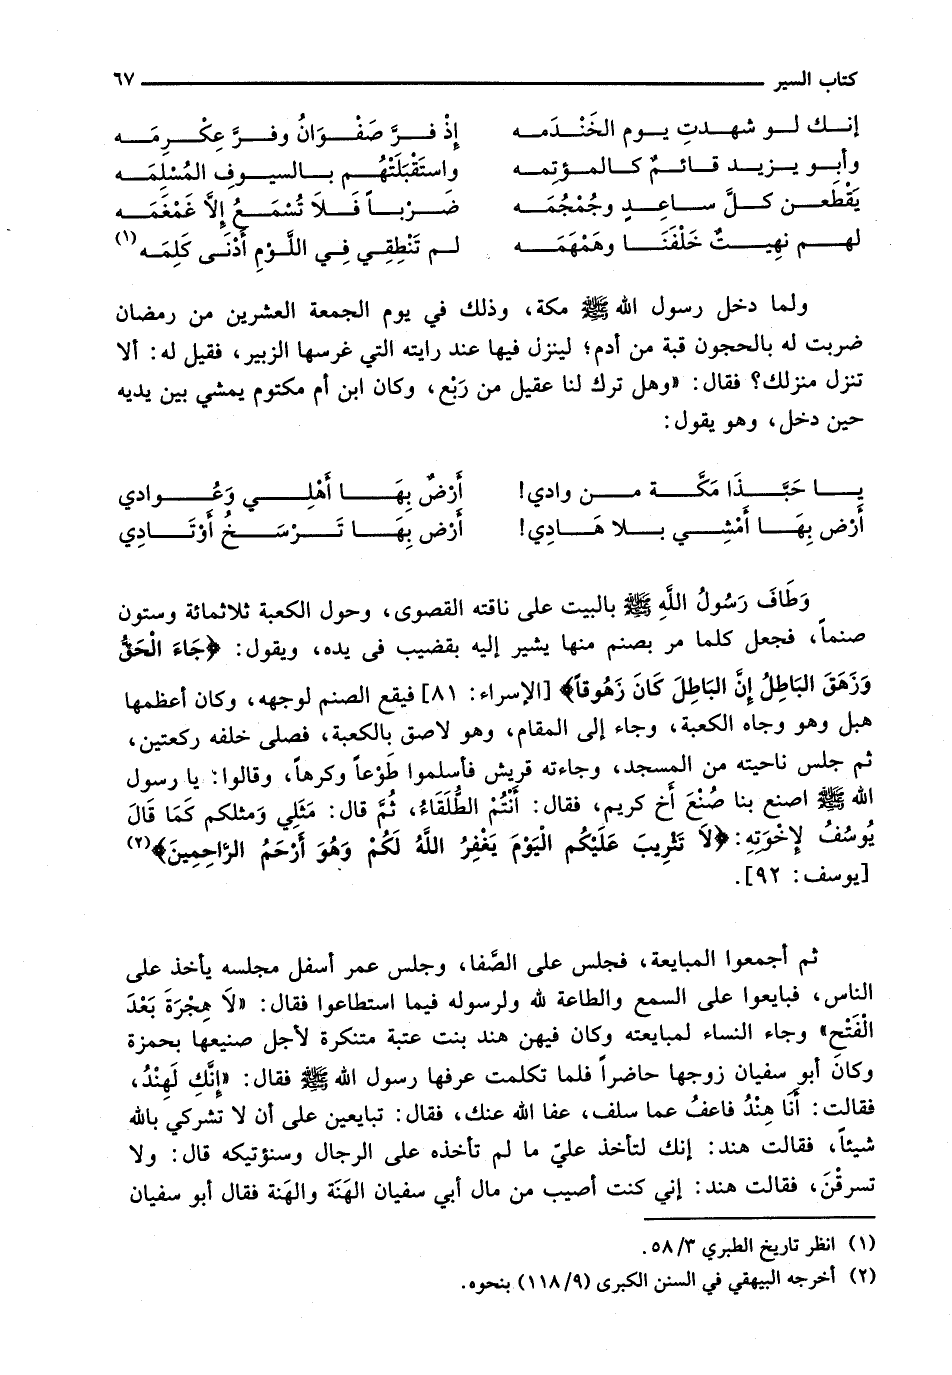 كتاب السير ٦٧
إنك لو شهدتِ يوم الخَنْدَمه إذْ فرَّ صَفْوَانُ وفرَّ عِكْرِمَه
وأبو يزيد قائمٌ كالمؤتمه واستَقْبَلَتْهُم بالسيوفِ المُسْلِمَه
يَقْطَعن كلَّ ساعدٍ وجُمْجُمَه ضَرْباً فَلا تُسْمَعُ إلاَّ غَمْغَمَه
لهم نهِيتٌ خَلْفَنَا وهَمْهَمَه لم تَنْطِقِي فِي اللَّوْمِ أَدْنَى كَلِمَه (١)
ولما دخل رسول الله ﷺ مكة، وذلك في يوم الجمعة العشرين من رمضان
ضربت له بالحجون قبة من أدم؛ لينزل فيها عند رايته التي غرسها الزبير، فقيل له: ألا
تنزل منزلك؟ فقال: «وهل ترك لنا عقيل من رَبْع، وكان ابن أم مكتوم يمشي بين يديه
حين دخل، وهو يقول:
يا حَبَّذَا مَكَّة من وادي! أَرْضٌ بِهَا أَهْلِي وَعُوادي
أَرْض بِهَا أَمْشِي بلا هَادِي! أَرْض بِهَا تَرْسَخُ أَوْتَادِي
وَطَافَ رَسُولُ اللَّهِ ﷺ بالبيت على ناقته القصوى، وحول الكعبة ثلاثمائة وستون
صنماً، فجعل كلما مر بصنم منها يشير إليه بقضيب فى يده، ويقول: ﴿جَاءَ الْحَقُّ
وَزَهَقَ البَاطِلُ إِنَّ البَاطِلَ كَانَ زَهُوقاً﴾ [الإسراء: ٨١] فيقع الصنم لوجهه، وكان أعظمها
هبل وهو وجاه الكعبة، وجاء إلى المقام، وهو لاصق بالكعبة، فصلى خلفه ركعتين،
ثم جلس ناحيته من المسجد، وجاءته قريش فأسلموا طَوْعاً وكرهاً، وقالوا: يا رسول
الله ﷺ اصنع بنا صُنْعَ أَخ كريم، فقال: أَنْتُمْ الطُّلَقَاءُ، ثُمَّ قال: مَثَلِي وَمثلكم كَمَا قَالَ
يُوسُفُ لِإِخْوَتِهِ: ﴿لاَ تَثْرِيبَ عَلَيْكُم الْيَوْمَ يَغْفِرُ اللَّهُ لَكُمْ وَهُوَ أَرْحَمُ الرَّاحِمِينَ﴾(٢)
[يوسف: ٩٢].
ثم أجمعوا المبايعة، فجلس على الصَّفا، وجلس عمر أسفل مجلسه يأخذ على
الناس، فبايعوا على السمع والطاعة لله ولرسوله فيما استطاعوا فقال: «لاَ هِجْرَةَ بَعْدَ
الْفَتْحِ» وجاء النساء لمبايعته وكان فيهن هند بنت عتبة متنكرة لأجل صنيعها بحمزة
وكان أبو سفيان زوجها حاضراً فلما تكلمت عرفها رسول الله ﷺ فقال: «إِنَّكِ لَهِنْدُ،
فقالت: أَنَا هِنْدُ فاعفُ عما سلف، عفا الله عنك، فقال: تبايعين على أن لا تشركي بالله
شيئاً، فقالت هند: إنك لتأخذ عليّ ما لم تأخذه على الرجال وسنؤتيكه قال: ولا
تسرقْنَ، فقالت هند: إني كنت أصيب من مال أبي سفيان الهَنَة والهَنة فقال أبو سفيان
(١) انظر تاريخ الطبري ٥٨/٣.
(٢) أخرجه البيهقي في السنن الكبرى (١١٨/٩) بنحوه.